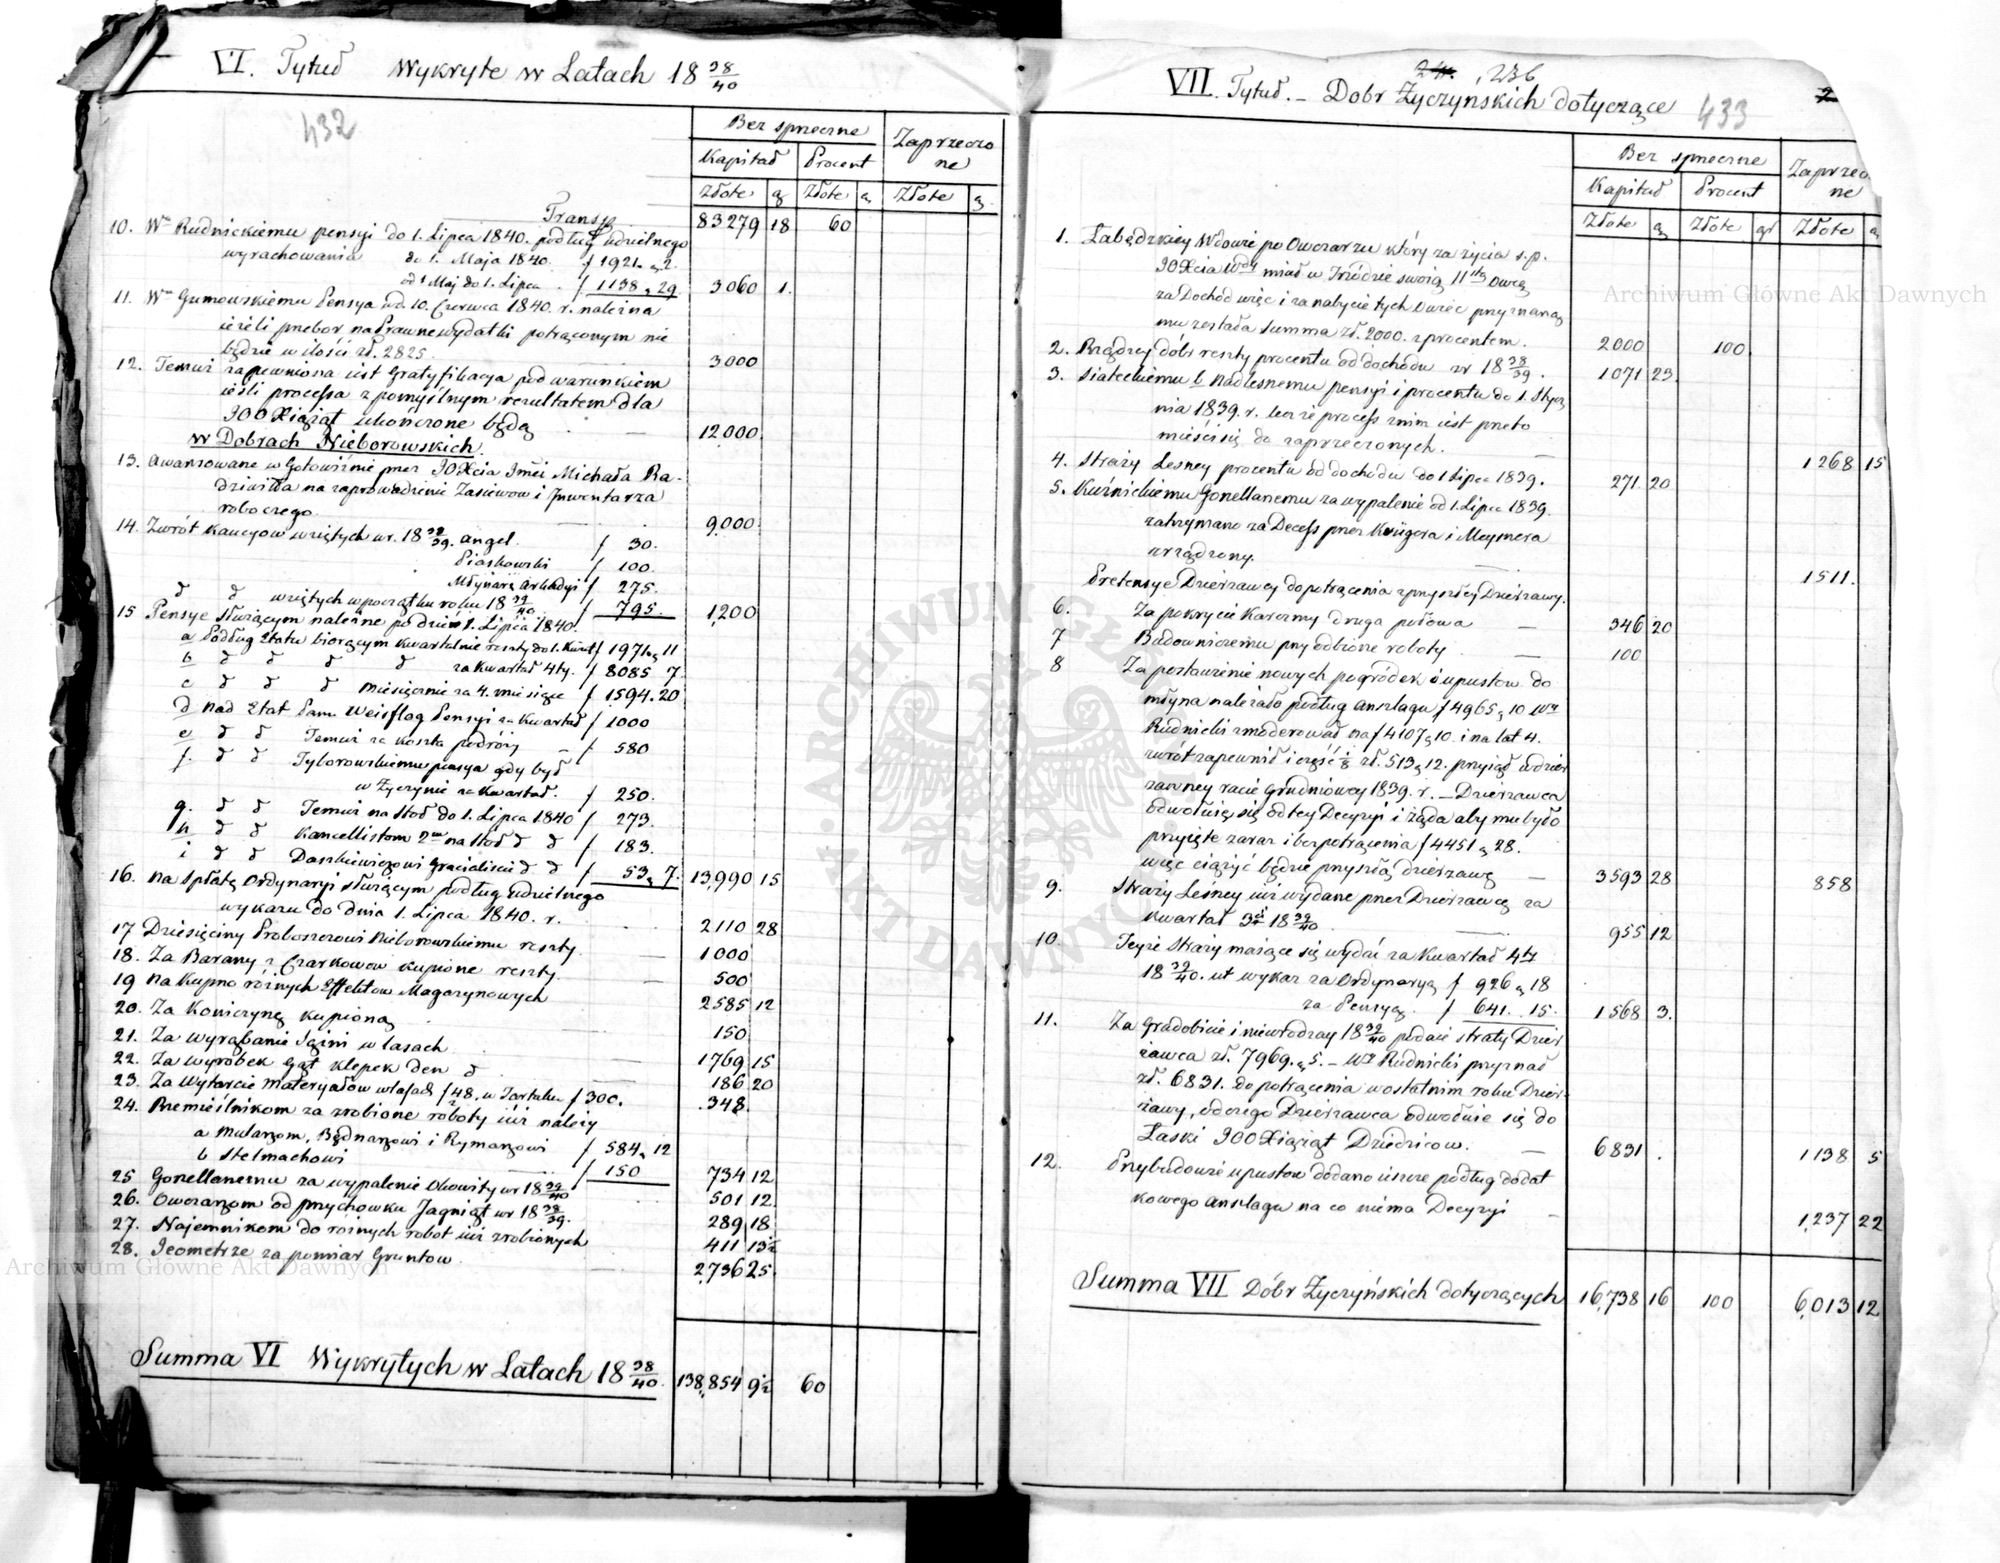 VI. Tytuł Wykryte w Latach 18 38/40
432
Bez sprzeczne
Zaprzeczo
ne
Kapitał Procent
Złote g Złote g Złote g
Transp 83279 18 60
10. Wmu Rudnickiemu pensyi do 1. Lipca 1840. podług udzielnego
wyrachowania do 1. Maja 1840. f 1921. g 2.
od 1 Maj do 1. Lipca f 1138 g 29 3060 1.
11. Wmu Gumowskiemu Pensya od 10. Czerwca 1840. r. należna
ieżeli przebor na Prawne wydatki potrąconym nie
będzie w ilości zł. 2825. 3000
12. Temuż zapewniona iest Gratyfikacya pod warunkiem
ieśli processa z pomyślnym rezultatem dla
JOO Xiążąt ukończone będą 12000
w Dobrach Nieborowskich.
13. Awansowane w Gotowiźnie przez JOXcia Jmći Michała Ra-
dziwiłła na zaprowadzenie Zasiewow i Jnwentarza
roboczego 9.000
14. Zwrót Kaucyow wziętych w r. 18 38/39. Angel. f 30.
Piaskowski f 100.
Młynarz Arkadyi f 275.
d d wziętych w początku roku 18 39/40. f 795. 1,200
15 Pensye służącym należne po dzień 1. Lipca 1840.
a Podług Etatu biorącym kwartalnie reszty do 1. Kwiet f 1971 g 11
b d d d za kwartał 4ty. f 8085 7
c d d d miesięcznie za 4. miesiące f 1594. 20
d nad Etat Panu Weisflog Pensyi za kwartał f 1000
e d d Temuż za koszta podróży f 580
f. d d Tyborowskiemu pensya gdy był
w Życzynie za kwartał. f 250.
g. d d Temuż na stoł do 1. Lipca 1840 f 273.
h d d Kancellistom 2m na stoł d d f 183.
i d d Daszkiewiczowi Gracialiście d d f 53 g 7. 13,990 15
16. Na spłatę Ordynaryi służącym podług udzielnego
wykazu do dnia 1. Lipca 1840. r. 2110 28
17 Dziesięciny Proboszczowi Nieborowskiemu reszty 1000
18. Za Barany z Czarkowow kupione reszty 500
19 Na kupno różnych Effektow Magazynowych 2585 12
20. Za Koniczynę kupioną 150
21. Za wyrąbanie Sążni w lasach 1769 15
22. Za wyrobek Gąt klepek den d 186 20
23. Za Wytarcie materyałów w lasach f 48, w Tartaku f 300. 348
24. Rzemieślnikom za zrobione roboty iuż należy
a Mularzom, Bednarzowi i Rymarzowi f 584 g 12
b Stelmachowi f 150 734 12
25 Gorzellanemu za wypalenie Okowity w r 18 39/40 501 12
26. Owczarzom od przychowku Jagniąt w r 18 38/39. 289 18
27. Najemnikom do różnych robot iuż zrobionych 411 13½
28. Jeometrze za pomiar Gruntow 2736 25
Summa VI Wykrytych w Latach 18 38/40. 138,854 9½ 60
VII. Tytuł. – Dobr Życzyńskich dotyczące
236
433
Bez sprzeczne
Zaprzeczo
ne
Kapitał Procent
Złote g Złote gr Złote g
1. Łabędzkiey Wdowie po Owczarzu który za życia s.p.
JOXcia Wdy miał w Trzodzie swoią 11tą owcę
za Dochód więc i za nabycie tych owiec przyznaną
mu została summa zł. 2000. z procentem. 2000 100
2. Rządzcy dóbr reszty procentu od dochodu w 18 38/39. 1071 23.
3. Siateckiemu b. Nadleśnemu pensyi i procentu do 1. Stycz
nia 1839. r. lecz że process z nim iest przeto
mieści się do zaprzeczonych. 1268 15
4. Straży Leśney procentu od dochodu do 1 Lipca 1839. 271 20
5. Kuźnickiemu Gorzellanemu za wypalenie od 1. Lipca 1839.
zatrzymano za Decess przez Krügera i Meymera
urządzony. 1511.
Pretensye Dzierżawcy do potrącenia z przyszłey Dzierżawy.
6. Za pokrycie Karczmy druga połowa 346 20
7 Budowniczemu przy odbiorze roboty 100
8 Za postawienie nowych pogródek i upustow do
młyna należało podług Anszlagu f 4965 g 10 Wny
Rudnicki zmoderował na f 4107 g 10. i na lat 4.
zwrót zapewnił i część ⅛ zł. 513 g 12. przyiął w dzier
żawney racie Grudniowey 1839. r. – Dzierżawca
odwołuie się od tey Decyzyi i żąda aby mu było
przyięte zaraz i bez potrącenia f 4451 g 28.
więc ciążyć będzie przyszłą dzierżawę 3593 28 858
9. Straży Leśney iuż wydane przez Dzierżawcę za
kwartał 3ci 18 39/40 955 12
10. Teyże Straży maiące się wydać za Kwartał 4ty
18 39/40. ut wykaz za Ordynaryą f 926 g 18
za Pensyą f 641. 15. 1568 3.
11. Za Gradobicie i nieurodzay 18 39/40 podaie straty Dzier
żawca zł. 7969. g 5. – Wny Rudnicki przyznał
zł. 6831. do potrącenia w ostatnim roku Dzier-
żawy, od czego Dzierżawca odwołuie się do
Łaski JOO Xiążąt Dziedzicow. 6831 . 1138 5
12. Przy budowie upustow dodano ieszcze podług dodat
kowego Anszlagu na co niema Decyzyi 1,237 22
Summa VII Dóbr Życzyńskich dotyczących 16,738 16 100 6,013 12
Archiwum Główne Akt Dawnych
Archiwum Główne Akt Dawnych
ARCHIWUM GŁÓWNE AKT DAWNYCH